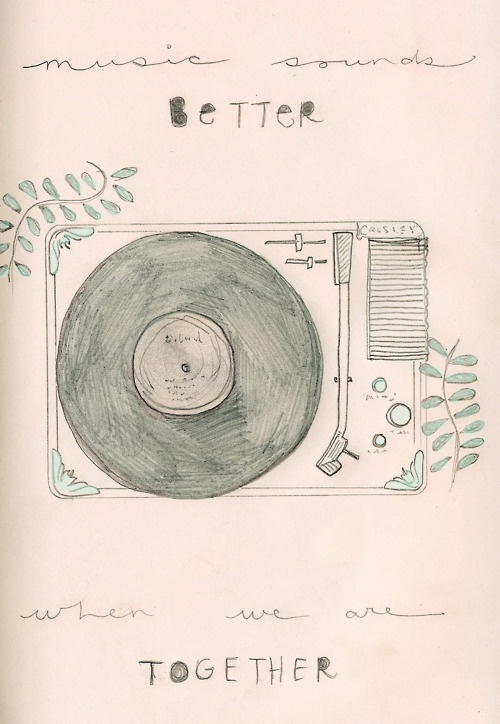 music sounds
BeTTeR
CROSLEY
when we are
TOGETHER